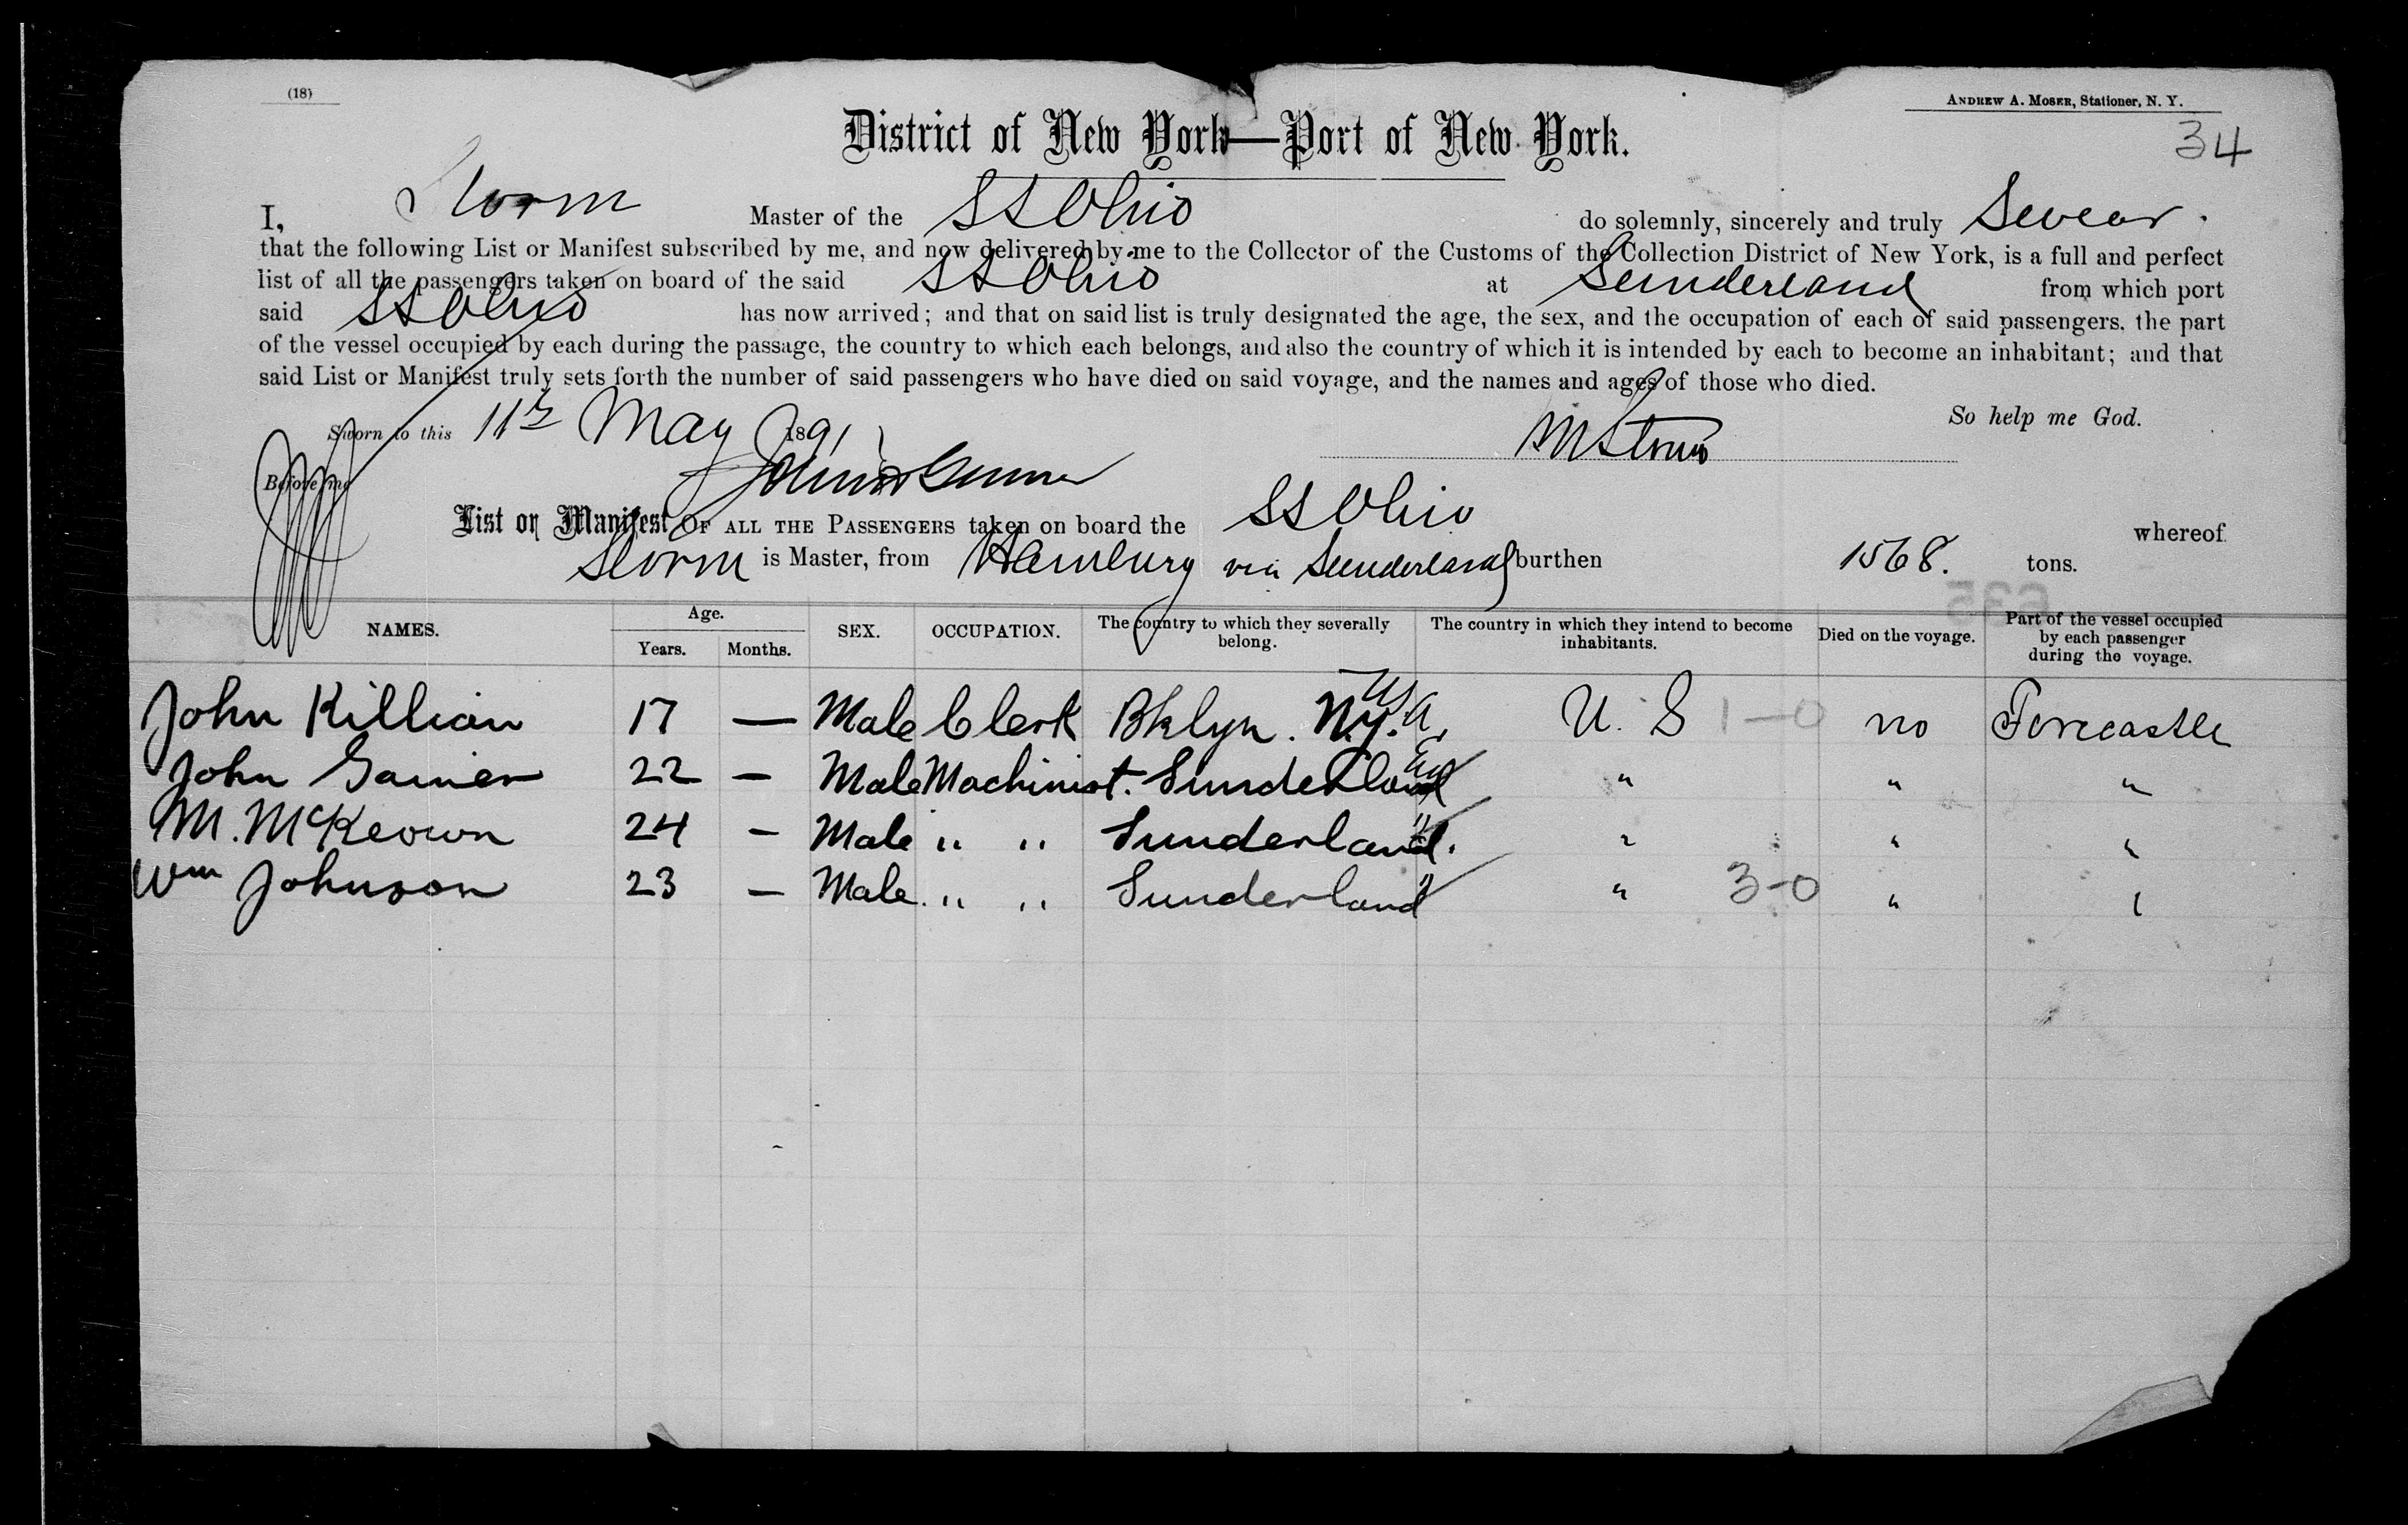 (18)
ANDREW A. MOSER, Stationer, N. Y.
District of New York—Port of New York.
34
I, Storm Master of the SS Ohio do solemnly, sincerely and truly Swear.
that the following List or Manifest subscribed by me, and now delivered by me to the Collector of the Customs of the Collection District of New York, is a full and perfect
list of all the passengers taken on board of the said SS Ohio at Sunderland from which port
said SS Ohio has now arrived; and that on said list is truly designated the age, the sex, and the occupation of each of said passengers, the part
of the vessel occupied by each during the passage, the country to which each belongs, and also the country of which it is intended by each to become an inhabitant; and that
said List or Manifest truly sets forth the number of said passengers who have died on said voyage, and the names and ages of those who died.
So help me God.
Sworn to this 11th May 1891
M Storm
Before me
List or Manifest OF ALL THE PASSENGERS taken on board the SS Ohio whereof
Storm is Master, from Hamburg via Sunderland burthen 1568. tons.
635
NAMES. Age. Years. Months. SEX. OCCUPATION. The country to which they severally belong. The country in which they intend to become inhabitants. Died on the voyage. Part of the vessel occupied by each passenger during the voyage.
John Killian 17 — Male Clerk Bklyn. N.Y. USA U. S 1-0 no Forecastle
John 22 — Male Machinist. Sunderland " " "
M. McKeown 24 — Male " " Sunderland. " " " "
Wm Johnson 23 — Male. " " Sunderland " " 3-0 " "